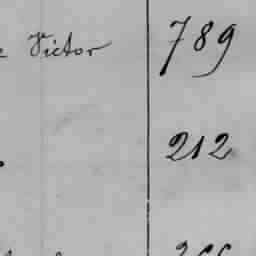 Victor 789
212